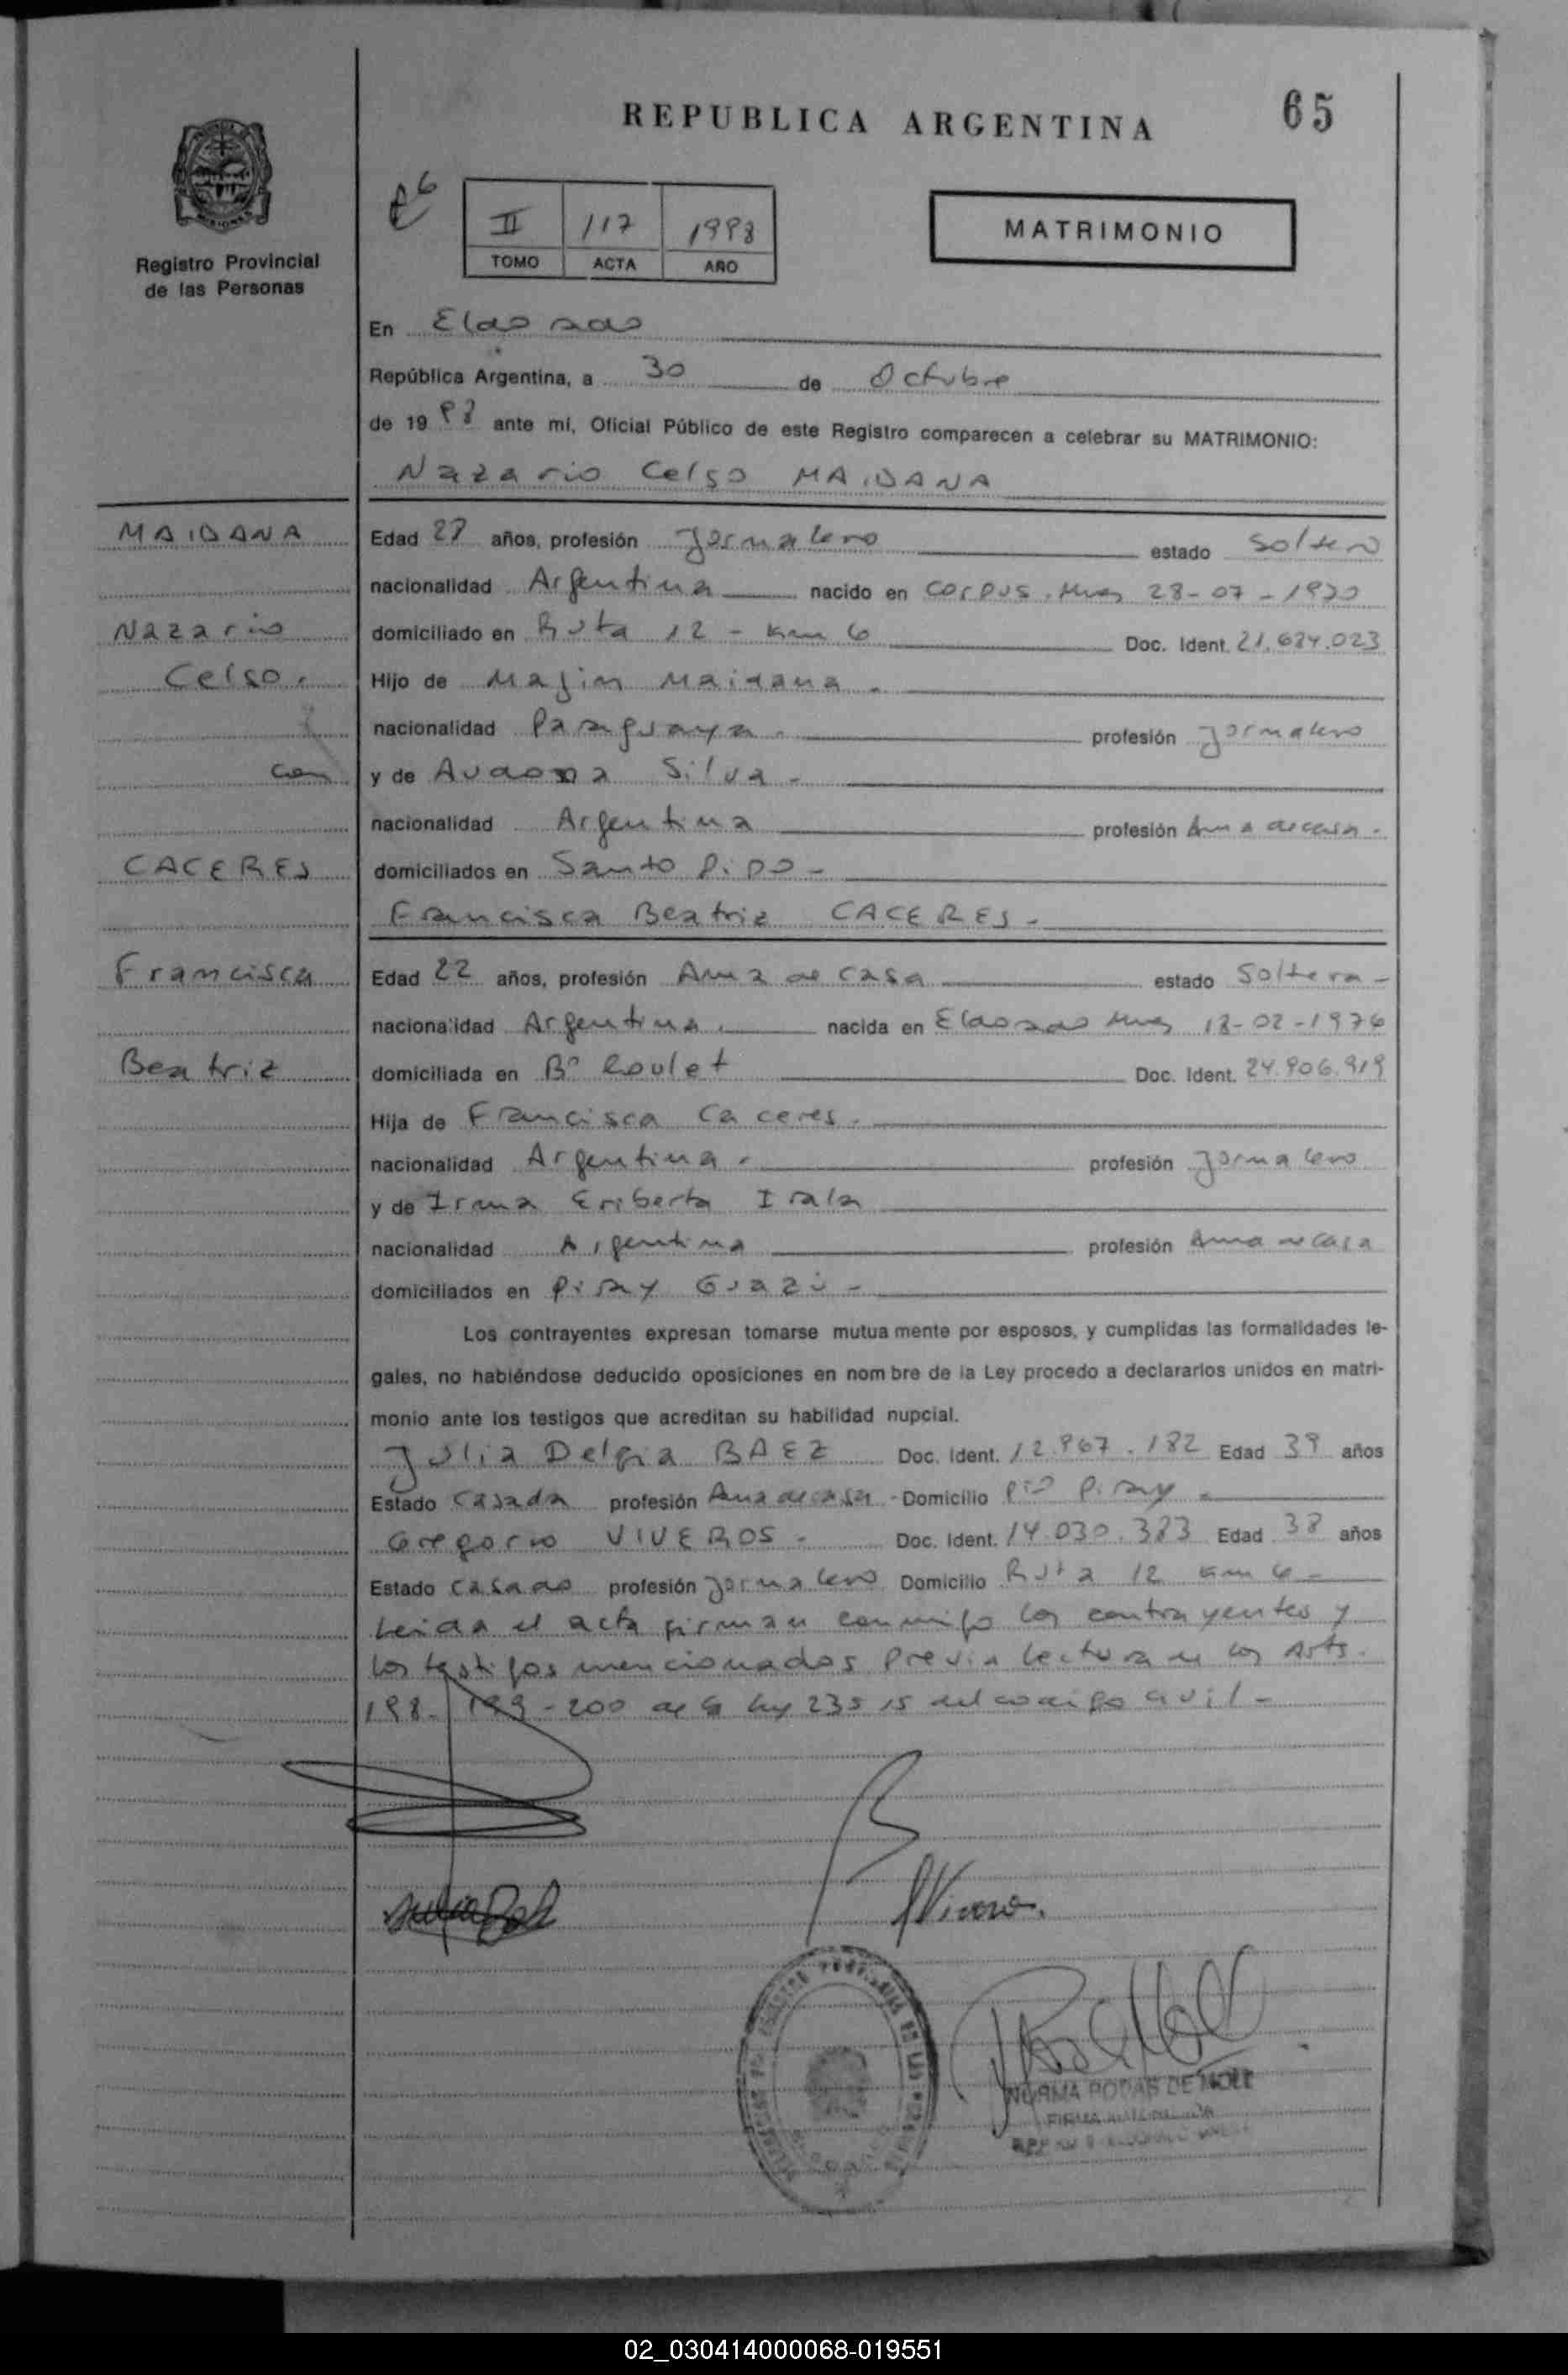 REPUBLICA ARGENTINA
65
Registro Provincial
de las Personas
II 117 1998
TOMO ACTA AÑO
MATRIMONIO
En Eldorado
República Argentina, a 30 de Octubre
de 1998 ante mí, Oficial Público de este Registro comparecen a celebrar su MATRIMONIO:
Nazario Celso MAIDANA
MAIDANA
Nazario
Celso.
con
CACERES
Francisca
Beatriz
Edad 28 años, profesión Jornalero estado Soltero
nacionalidad Argentina nacido en Corpus. Mnes 28-07-1970
domiciliado en Ruta 12 - Km 6 Doc. Ident. 21.684.023
Hijo de Majin Maidana.
nacionalidad Paraguaya. profesión Jornalero
y de Silva -
nacionalidad Argentina profesión Ama de casa.
domiciliados en Santo Pipo -
Francisca Beatriz CACERES -
Edad 22 años, profesión Ama de casa estado Soltera -
nacionalidad Argentina. nacida en Eldorado Mnes 18-02-1976
domiciliada en Bº Roulet Doc. Ident. 24.906.919
Hija de Francisca Caceres.
nacionalidad Argentina. profesión Jornalero
y de Irma Eriberta Irala
nacionalidad Argentina profesión Ama de casa
domiciliados en Piray Guazú -
Los contrayentes expresan tomarse mutuamente por esposos, y cumplidas las formalidades le-
gales, no habiéndose deducido oposiciones en nombre de la Ley procedo a declararlos unidos en matri-
monio ante los testigos que acreditan su habilidad nupcial.
Julia Delfia BAEZ Doc. Ident. 12.967.182 Edad 39 años
Estado Casada profesión Ama de casa - Domicilio Pto Piray -
Gregorio VIVEROS - Doc. Ident. 14.030.383 Edad 38 años
Estado Casado profesión Jornalero Domicilio Ruta 12 Km 6 -
Leida el acta firman conmigo los contrayentes y
los testigos mencionados previa lectura de los Arts.
198-199-200 de la ley 23515 del codigo civil -
NORMA RODAS DE MOLL
02_030414000068-019551